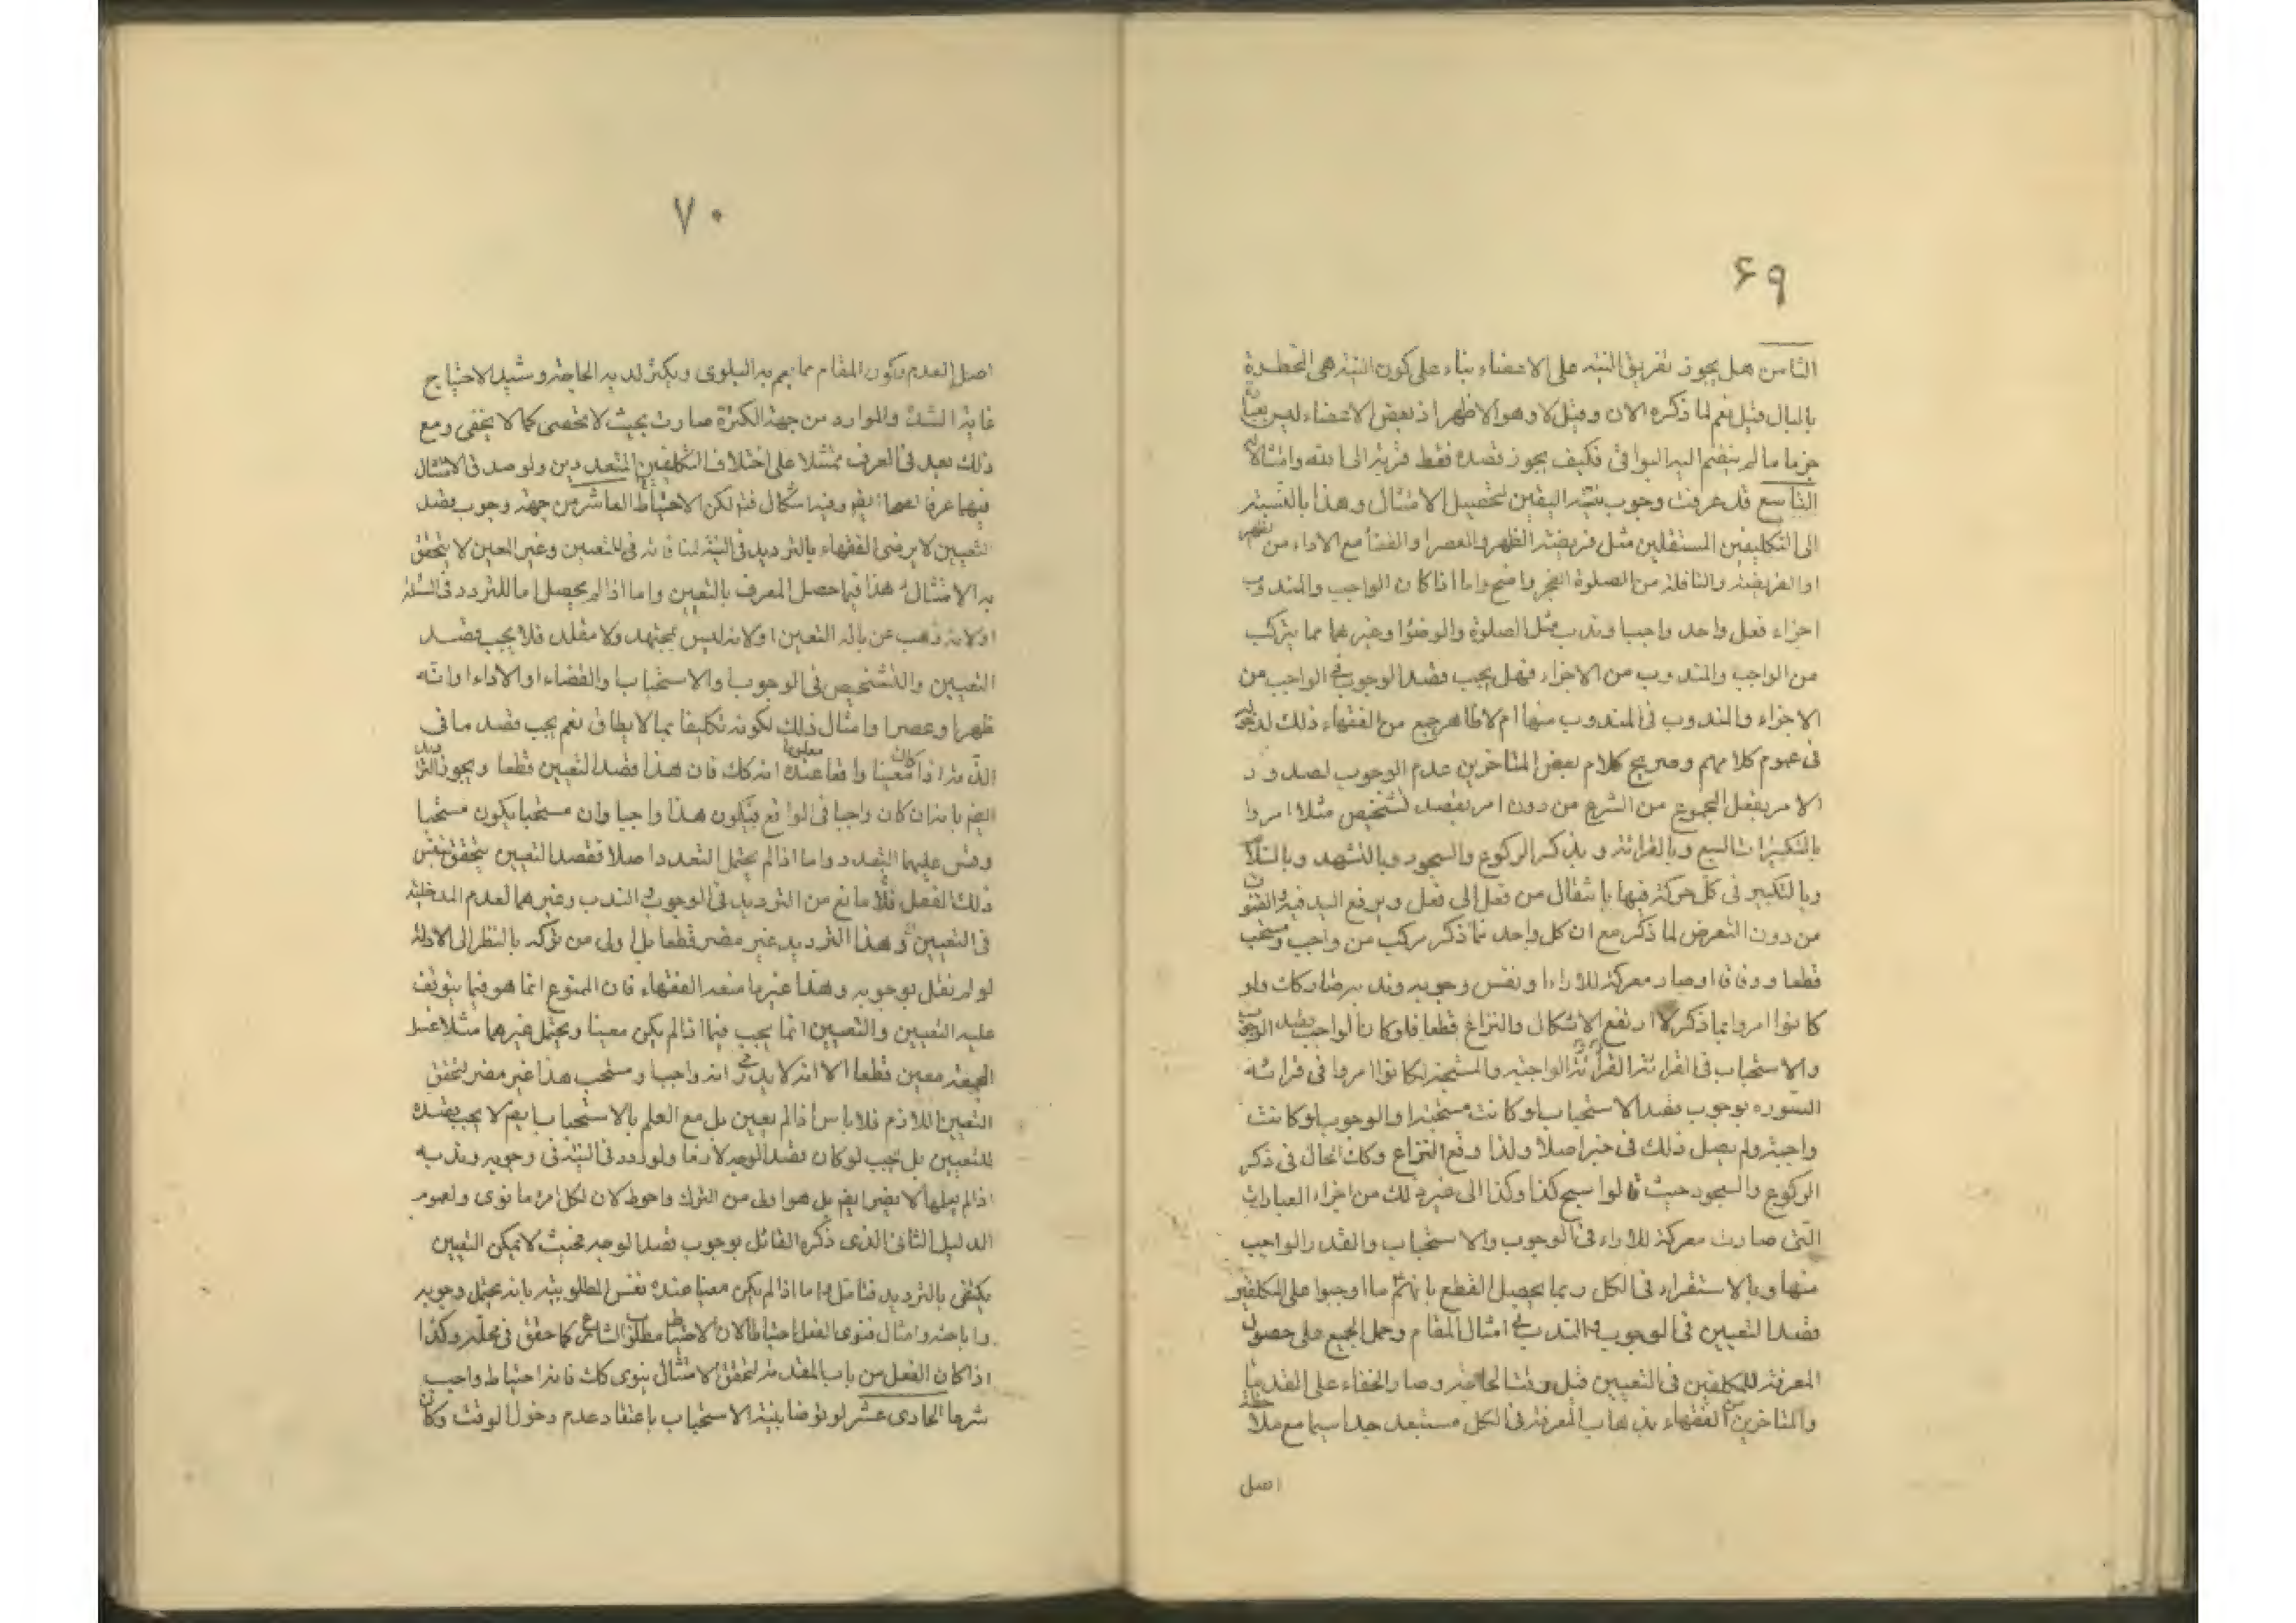 ۶۹
الثامن هل يجوز تفريق النية على الاعضاء بناء على كون النية هى المخطرة
بالبال قيل نعم لما ذكره الان وقيل لا وهو الاظهر اذ بعض الاعضاء ليس بعبادة
جزما ما لم ينضم اليه البواقى فكيف يجوز قصده فقط قربة الى الله وامتثالا له
التاسع قد عرفت وجوب نية اليقين لتحصيل الامتثال وهذا بالنسبة
الى التكليفين المستقلين مثل فريضة الظهر والعصر او القضأ مع الاداء من الظهر
او الفريضة والنافلة من الصلوة الفجر واضح واما اذا كان الواجب والمندوب
اجزاء فعل واحد واجبا وندب مثل الصلوة والوضؤ وغيرهما مما يتركب
من الواجب والمندوب من الاجزاء فهل يجب قصد الوجوب فى الواجب من
الاجزاء والندوب فى المندوب منها ام لا ظاهر جمع من الفقهاء ذلك لدخوله
فى عموم كلامهم وصريح كلام بعض المتاخرين عدم الوجوب لصدور
الامر بفعل المجموع من الشرع من دون امر بقصد تشخيص مثلا امروا
بالتكبيرات السبع وبالقرائة و بذكر الركوع والسجود وبالتشهد وبالسلام
وبالتكبير فى كل حركة فيها بانتقال من فعل الى فعل وبرفع اليد فيه والقنوت
من دون التعرض لما ذكر مع ان كل واحد مما ذكر مركب من واجب ومستحب
قطعا ووفاقا وصار معركة للاراء ونفس وجوبه وندبه صار كك ولو
كانوا امروا بما ذكر لارتفع الاشكال والنزاع قطعا فلو كان الواجب قصد الوجوب
والاستحباب فى القرائة القرائة الواجبة والمستحبة لكانوا امروا فى قرائة
السوره بوجوب قصد الاستحباب لو كانت مستحبة والوجوب لو كانت
واجبة ولم يصل ذلك فى خبر اصلا ولذا وقع النزاع وكك الحال فى ذكر
الركوع والسجود حيث قالوا سبح كذا وكذا الى غير ذلك من اجزاء العبادات
التى صارت معركة للاراء فى الوجوب والاستحباب والقدر الواجب
منها وبالاستقراء فى الكل ربما يحصل القطع بانهم ما اوجبوا على المكلفين
قصد التعيين فى الوجوب والندب فى امثال المقام وحمل الجميع على حصول
المعرفة للمكلفين فى التعيين قبل وقت الحاجة وصار الخفاء على القدماء
والمتاخرين من الفقهاء بذهاب المعرفة فى الكل مستبعد جدا سيما مع ملاحظة
اصل
۷۰
اصل العدم وكون المقام مما يعم به البلوى ويكثر لديه الحاجة وشيد الاحتياج
غاية الشدة والموارد من جهة الكثرة صارت بحيث لا تحصى كما لا يخفى ومع
ذلك بعيد فى العرف ممتثلا على اختلاف التكليفين المتعددين ولو صد فى الامتثال
فيهما عرفا ايض وفيه اشكال فتم لكن الاحتياط العاشر من جهة وجوب قصد
التعيين لا يرضى الفقهاء بالترديد فى النية لمنافاته فى التعيين وغير المعين لا يتحقق
به الامتثال هذا فيما حصل المعرف بالتعيين واما اذا لم يحصل اما للتردد فى المسئلة
او لانه ذهب عن باله التعين او لانه ليس بمجتهد ولا مقلد فلا يجب قصد
التعيين والتشخيص فى الوجوب والاستحباب والقضاء او الاداء او انه
ظهرا وعصرا وامثال ذلك لكونه تكليفا بما لا يطاق نعم يجب قصد ما فى
الذمة اذا كان معينا واقعا معلوما عنده انه كك فان هذا قصد التعيين قطعا ويجوز الترديد
ايضم بانه ان كان واجبا فى الواقع فيكون هذا واجبا وان مستحبا يكون مستحبا
وقس عليهما التعدد واما اذا لم يحتمل التعدد اصلا فقصد التعيين يتحقق بنفس
ذلك الفعل فلا مانع من الترديد فى الوجوب والندب وغيرهما لعدم المدخلية
فى التعيين وهذا الترديد غير مضر قطعا بل اولى من تركه بالنظر الى الادلة
لو لم نقل بوجوبه وهذا غير ما منعه الفقهاء فان الممنوع انما هو فيما يتوقف
عليه التعيين والتعيين انما يجب فيما اذا لم يكن معينا ويحتمل غيرهما مثلا غسل
الجمعة معين قطعا الا انه لا يدرى انه واجب او مستحب هذا غير مضر لتحقق
التعيين اللازم فلا باس اذا لم يعين بل مع العلم بالاستحباب ايضم لا يجب قصده
للتعيين بل يجب لو كان قصد الوجه لازما ولو ردد فى النية فى وجوبه وندبه
اذا لم يعلمها لا يضر ايضم بل هو اولى من الترك واحوط لان لكل امرء ما نوى ولعموم
الدليل الثانى الذى ذكره القائل بوجوب قصد الوجه فحيث لا يمكن التعيين
يكتفى بالترديد فتامل واما اذا لم يكن معينا عنده نفس المطلوبية بانه يحتمل وجوبه
واباحته وامثال فنوى الفعل احتياطا لان الاحتياط مطلوب الشارع كما حقق فى محله وكذا
اذا كان الفعل من باب المقدمة لتحقق الامتثال ينوى كك فانه احتياط واجب
شرعا الحادى عشر لو توضا بنية الاستحباب باعتقاد عدم دخول الوقت وكان